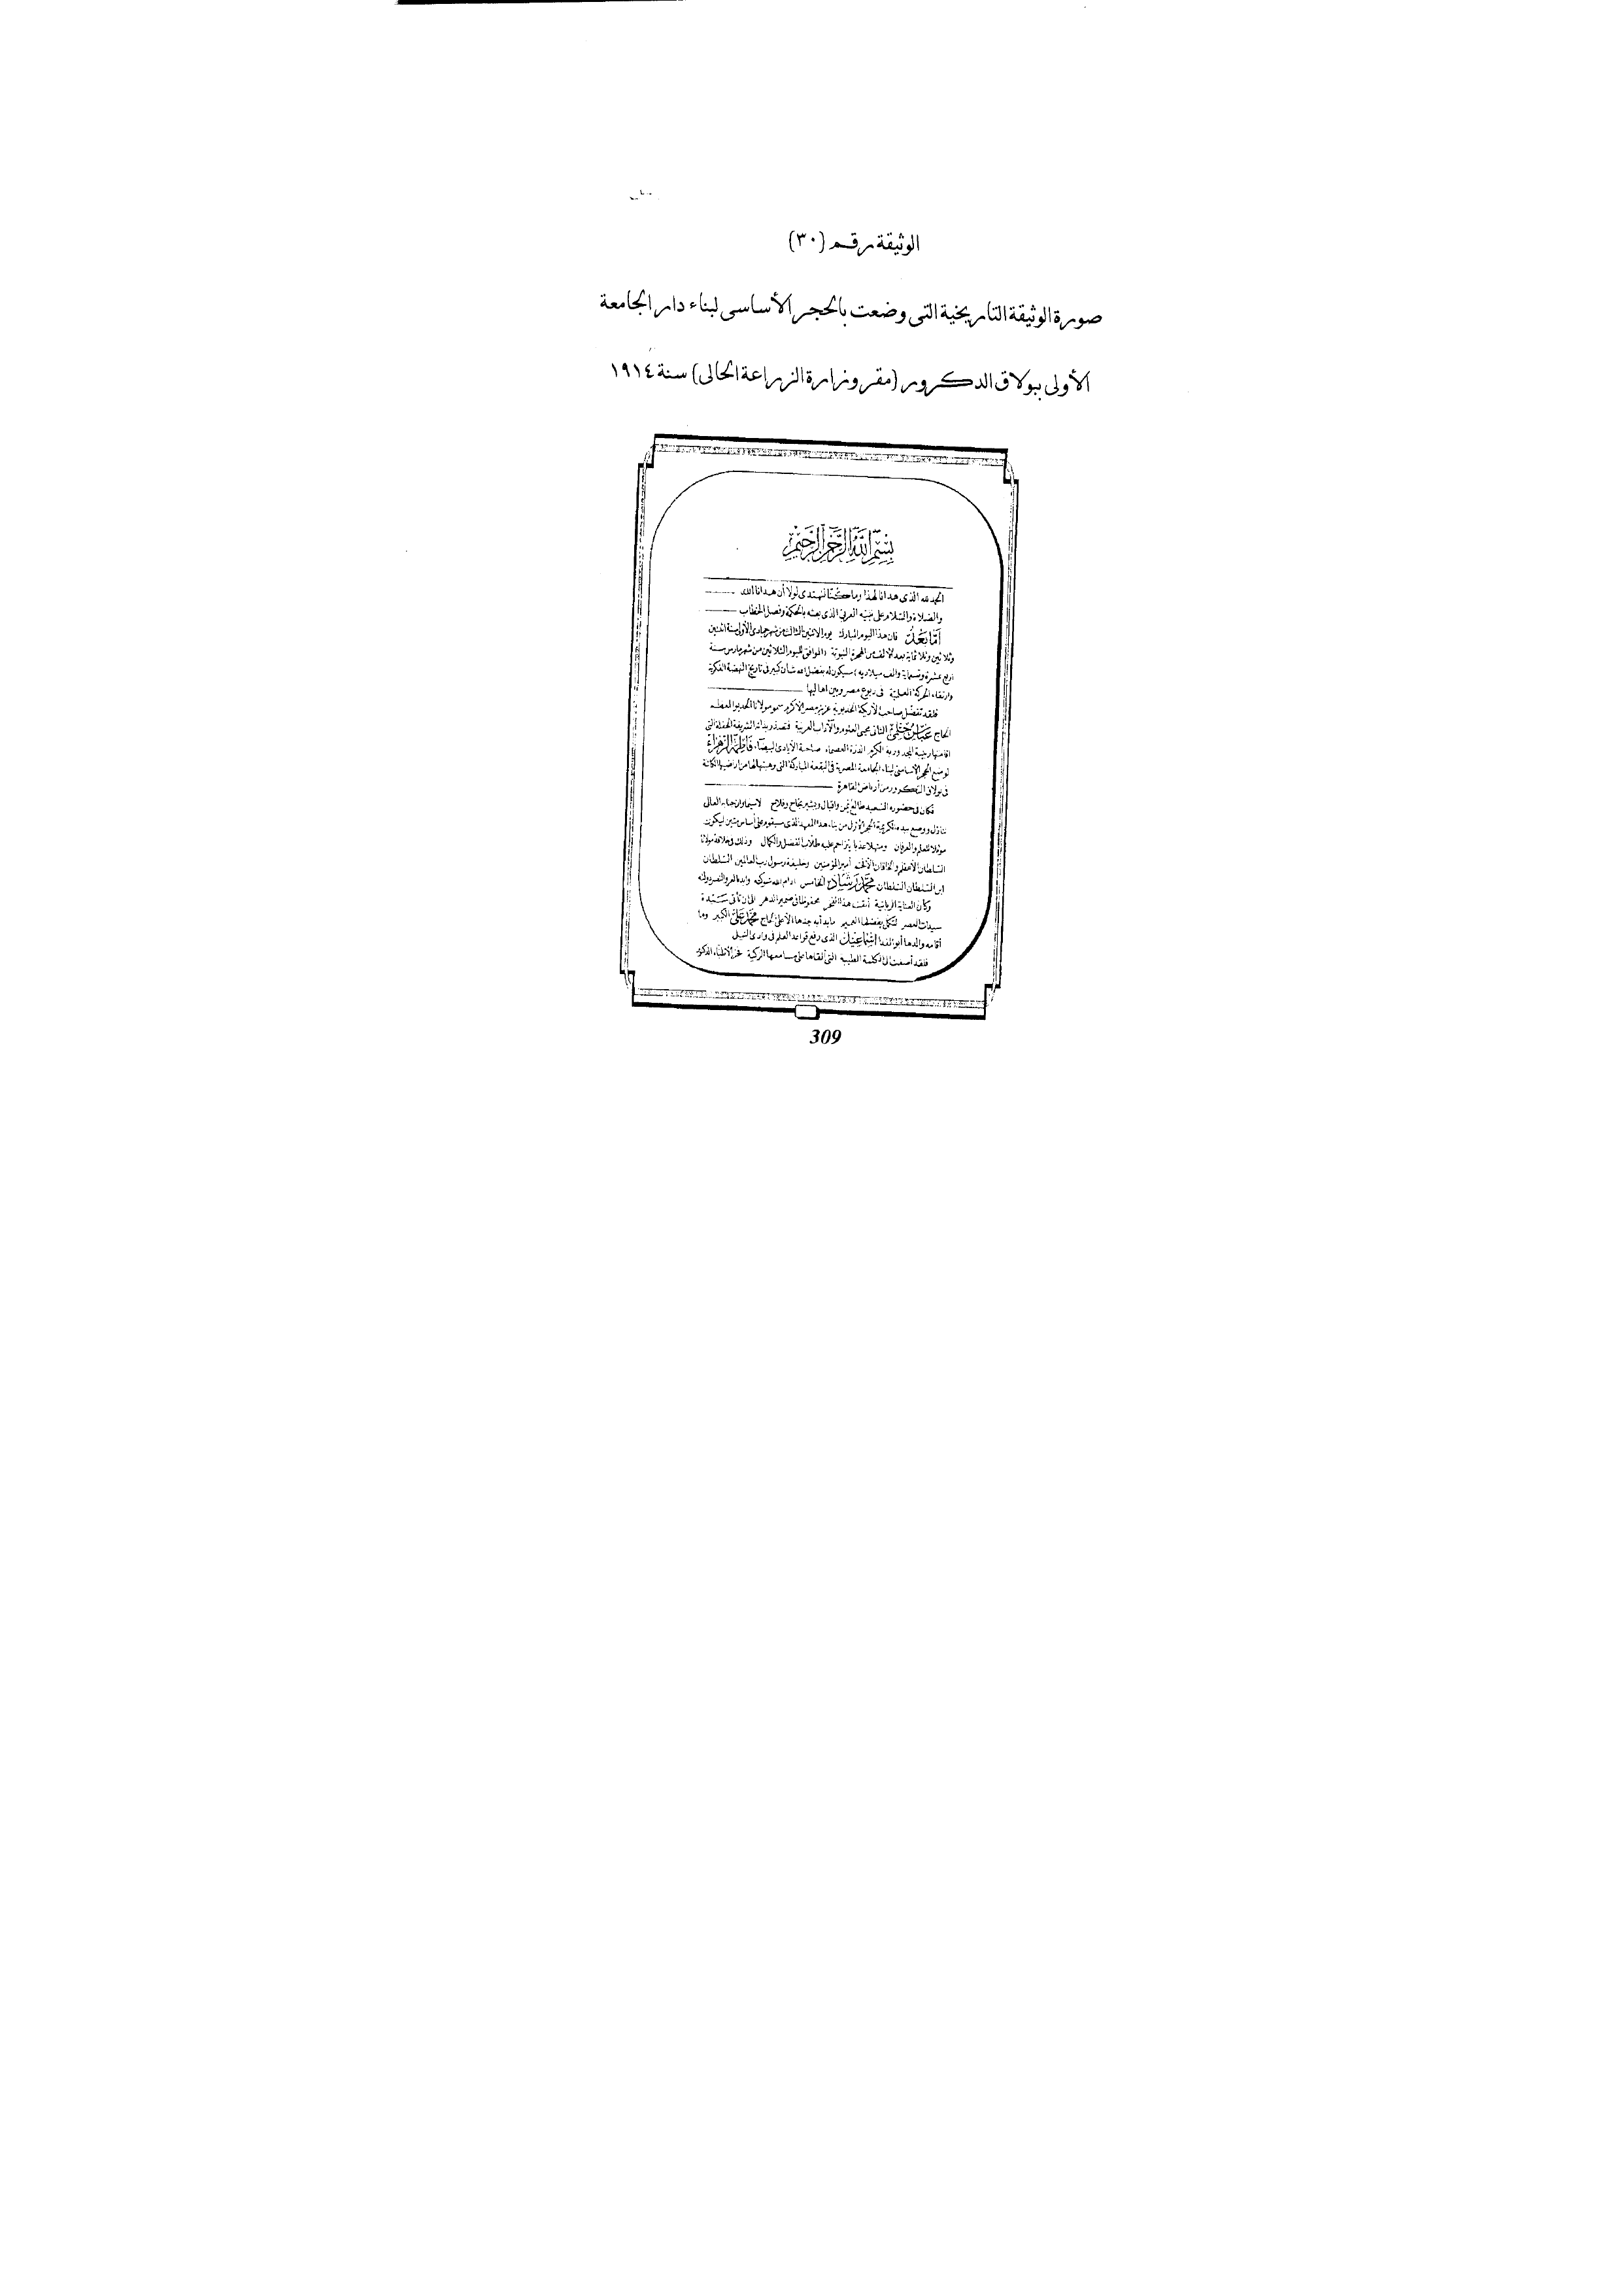 الوثيقة رقم (٣٠)
صورة الوثيقة التاريخية التى وضعت بالحجر الأساسى لبناء دار الجامعة
الأولى ببولاق الدكرور (مقر وزارة الزراعة الحالى) سنة ١٩١٤
بسم الله الرحمن الرحيم
الحمد لله الذى هدانا لهذا وما كنا لنهتدى لولا أن هدانا الله
والصلاة والسلام على نبيه العربى الذى بعثه بالحكمة وفصل الخطاب
أما بعد فان هذا اليوم المبارك يوم الاثنين الثالث من شهر جمادى الأولى سنة اثنتين
وثلاثين وثلاثمائة بعد الألف من الهجرة النبوية (الموافق لليوم الثلاثين من شهر مارس سنة
أربع عشرة وتسعمائة والف ميلادية) سيكون له بفضل الله شأن كبير فى تاريخ النهضة الفكرية
وارتقاء الحركة العلمية فى ربوع مصر وبين اهاليها
فلقد تفضل صاحب الأريكة الخديوية عزيز مصر الأكرم سمو مولانا الخديو المعظم
الحاج عباس حلمى الثانى محيى العلوم والآداب العربية فتصدر بذاته الشريفة الحفلة التى
اقامتها ربيبة المجد وربة الكرم الدرة العصماء صاحبة الأيادى البيضاء فاطمة الزهراء
لوضع الحجر الأساسى لبناء الجامعة المصرية فى البقعة المباركة التى وهبتها لها من اراضيها الكائنة
فى بولاق التكرور من أرباض القاهرة
فكان فى حضوره السعيد طالع يمن واقبال وبشير نجاح وفلاح لاسيما وان جنابه العالى
تنازل ووضع بيده الكريمة الحجر الأول من بناء هذا المعهد الذى سيقوم على أساس متين ليكون
موئلا للعلم والعرفان ومنهلا عذبا يتزاحم عليه طلاب الفضل والكمال وذلك فى خلافة مولانا
السلطان الأعظم والخاقان الأفخم أمير المؤمنين وخليفة رسول رب العالمين السلطان
ابن السلطان السلطان محمد رشاد الخامس ادام الله شوكته وايد بالعز والنصر دولته
وكأن العناية الربانية أبقت هذا الفخر محفوظا فى ضمير الدهر الى ان تأتى سيدة
سيدات العصر لتكمل بفضلها العميم ما بدأ به جدها الأعلى الحاج محمد على الكبير وما
أقامه والدها أبو الفدا اسماعيل الذى رفع قواعد العلم فى وادى النيل
فلقد أصغت الى الكلمة الطيبة التى ألقاها على مسامعها الزكية الأطباء الدكتور
309